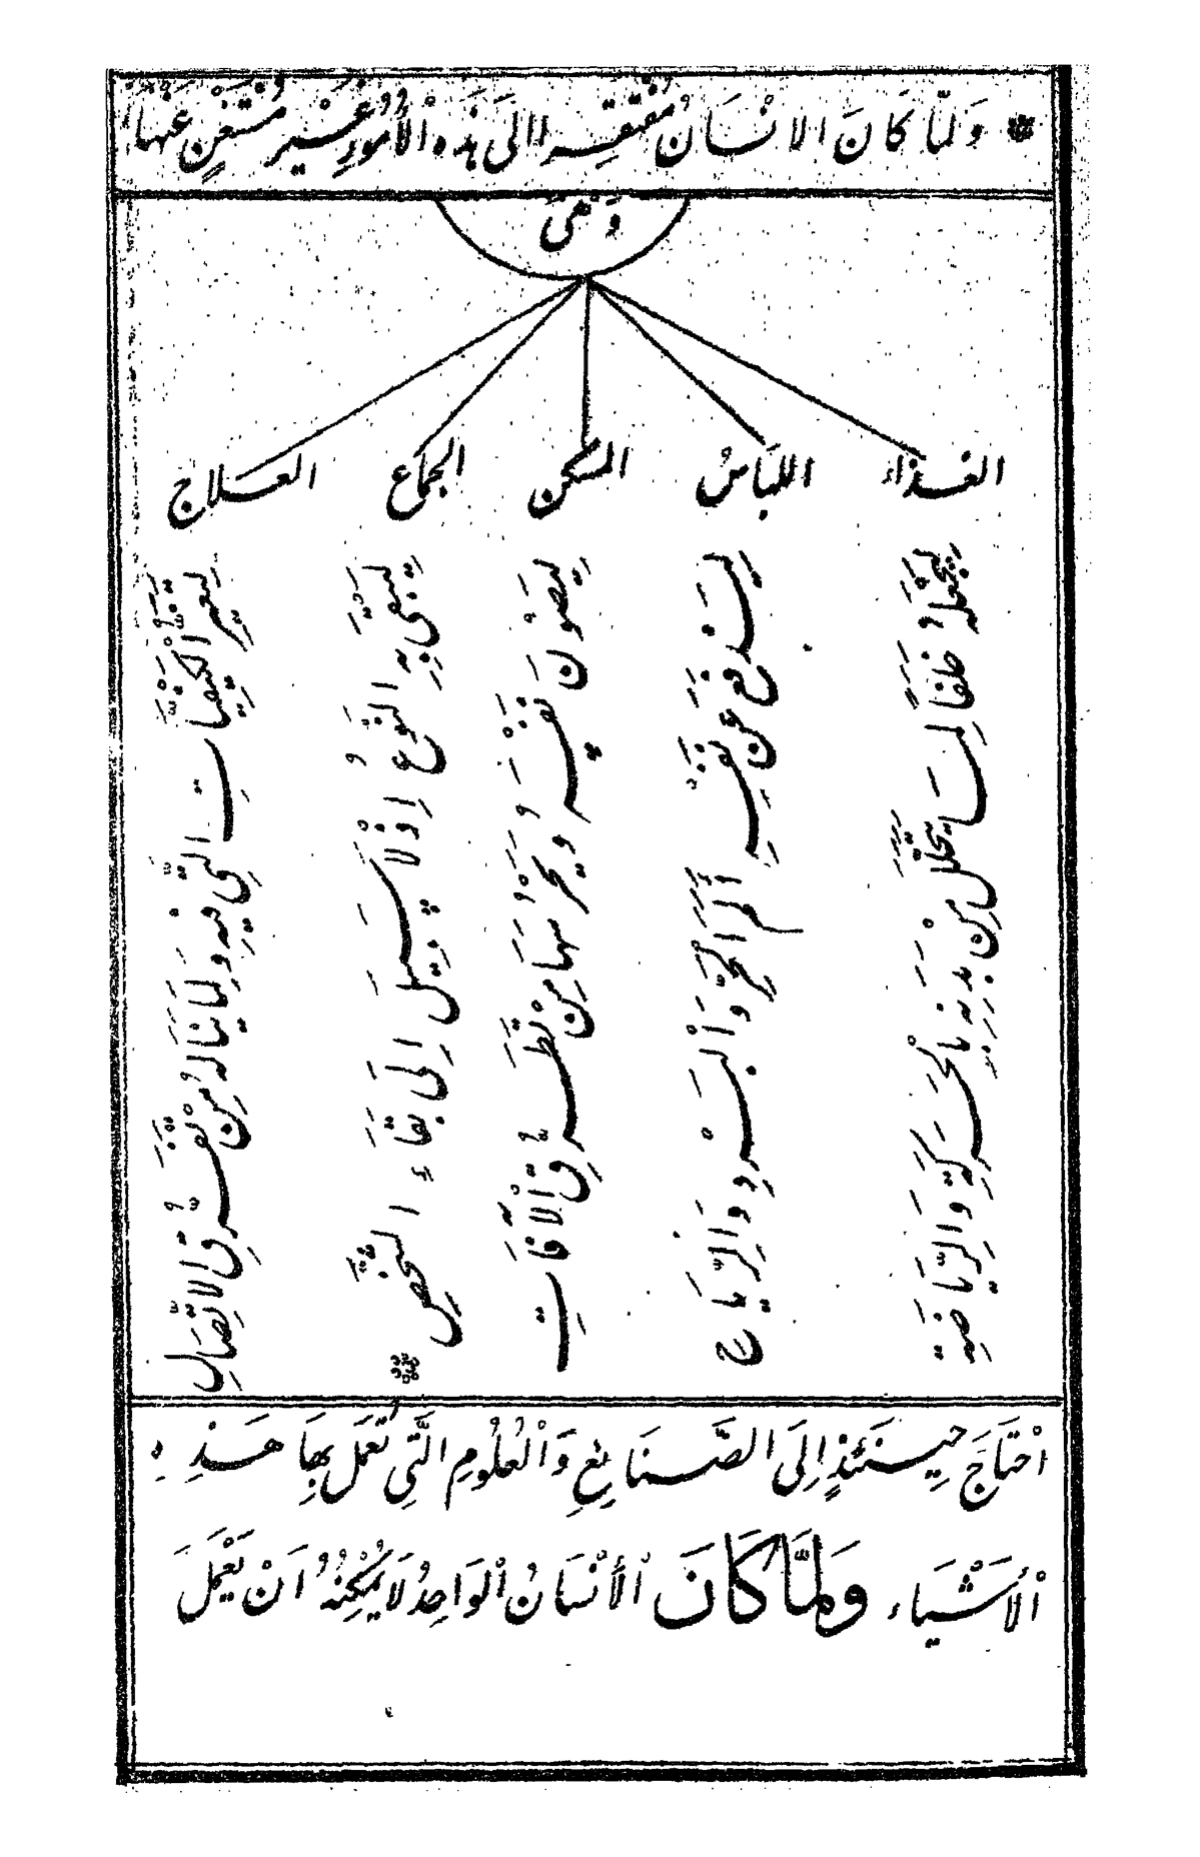 وَلَمَّا كَانَ الانْسَانُ مُفْتَقِرا الَى هٰذِهِ الْأُمُورِ غَيْر مُسْتَغْنٍ عَنْهَا
وَهْىَ
الغِذَاءُ
اللبَاسُ
المَسْكَن
الجِمَاع
العِلَاج
لِيَجْعَلَهُ خَلَفًا لِمَا يَتَحَلَّلُ مِنْ بَدَنِهِ بِالْحَرَكَةِ وَالرِّيَاضَةِ
لِيَدْفَعَ عَنْ نَفْسِهِ أَلَمَ الْحَرِّ وَالْبَرْدِ وَالرِّيَاحِ
لِيَصُونَ نَفْسَهُ وَيَحْرُسَهَا مِنْ تَطَرُّقِ الْآفَاتِ
لِيَبْقَى بِهِ النَّوْعُ إِذْ لَا سَبِيلَ إِلَى بَقَاءِ الشَّخْصِ
لِتَغْيِيرِ الْكَيْفِيَّاتِ الَّتِي فِيهِ وَلِمَا يَنَالُهُ مِنْ تَفَرُّقِ الِاتِّصَالِ
احْتَاجَ حِينَئِذٍ إِلَى الصَّنَائِعِ وَالْعُلُومِ الَّتِي تُعْمَلُ بِهَا هَذِهِ
الْأَشْيَاء وَلَمَّا كَانَ الْأنْسَانُ الْوَاحِدُ لَا يُمْكِنُهُ انْ يَعْمَلَ